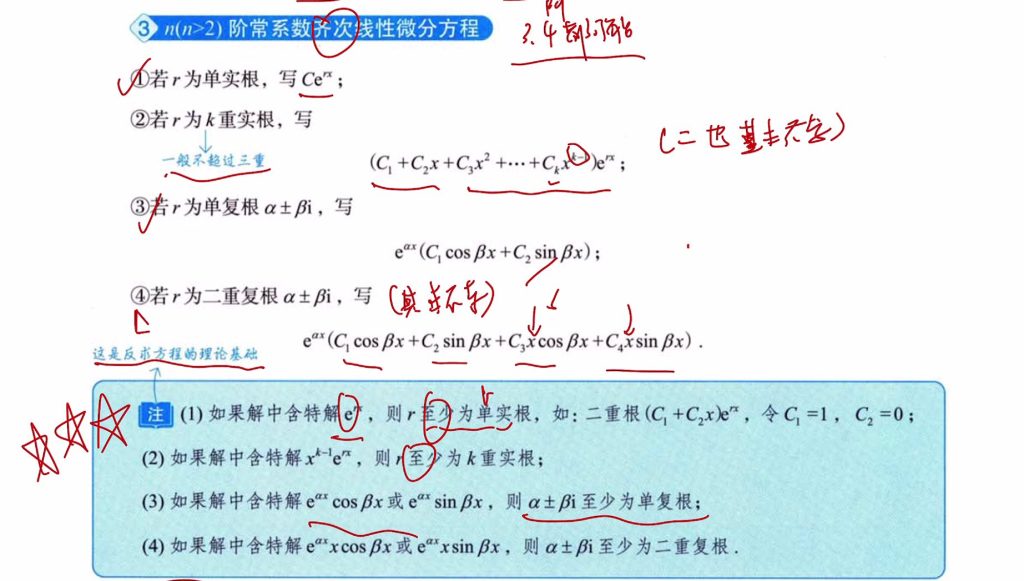 ③ n(n>2) 阶常系数齐次线性微分方程
①若 r 为单实根，写 Ce^{rx}；
②若 r 为 k 重实根，写
一般不超过三重
(C₁+C₂x+C₃x²+⋯+C_k x^{k-1})e^{rx}；
③若 r 为单复根 α±βi，写
e^{αx}(C₁cos βx+C₂sin βx)；
④若 r 为二重复根 α±βi，写
e^{αx}(C₁cos βx+C₂sin βx+C₃xcos βx+C₄xsin βx).
这是反求方程的理论基础
注 (1) 如果解中含特解 e^{rx}，则 r 至少为单实根，如：二重根 (C₁+C₂x)e^{rx}，令 C₁=1，C₂=0；
(2) 如果解中含特解 x^{k-1}e^{rx}，则 r 至少为 k 重实根；
(3) 如果解中含特解 e^{αx}cos βx 或 e^{αx}sin βx，则 α±βi 至少为单复根；
(4) 如果解中含特解 e^{αx}xcos βx 或 e^{αx}xsin βx，则 α±βi 至少为二重复根.